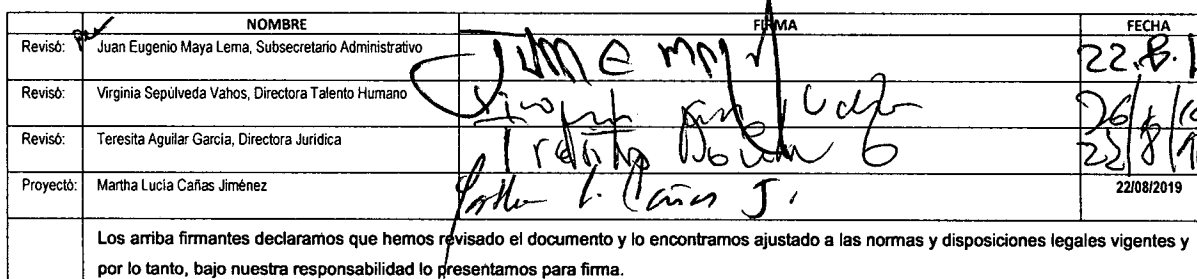 NOMBRE FIRMA FECHA
Revisó: Juan Eugenio Maya Lema, Subsecretario Administrativo 22.8.1
Revisó: Virginia Sepúlveda Vahos, Directora Talento Humano
Revisó: Teresita Aguilar García, Directora Jurídica
Proyectó: Martha Lucía Cañas Jiménez Cañas J. 22/08/2019
Los arriba firmantes declaramos que hemos revisado el documento y lo encontramos ajustado a las normas y disposiciones legales vigentes y
por lo tanto, bajo nuestra responsabilidad lo presentamos para firma.